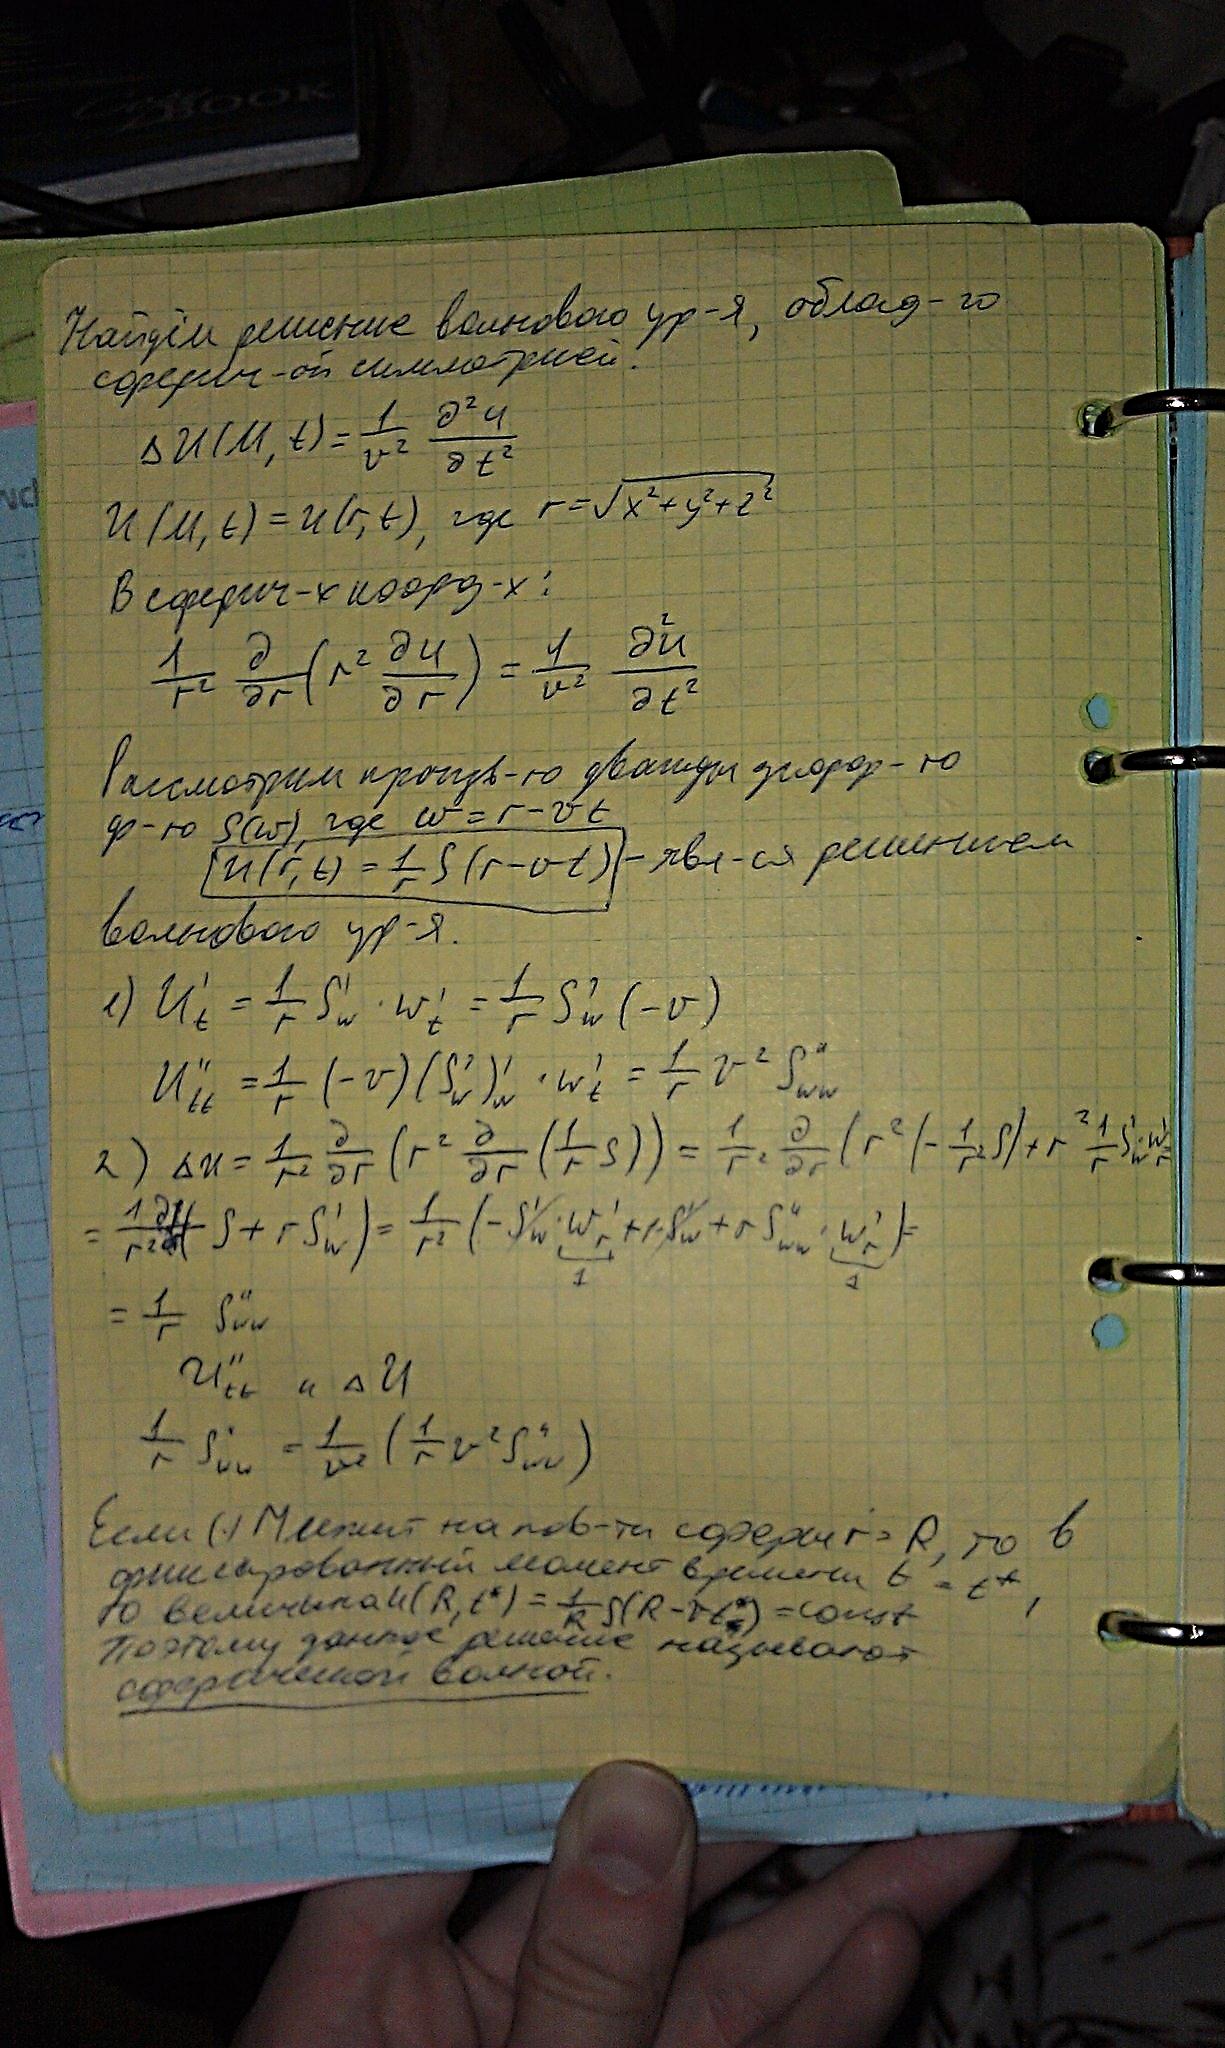 BOOK
Найдём решение волнового ур-я, облад-го
сферич-ой симметрией.
ΔU(M, t) = 1/v² ∂²u/∂t²
U(M, t) = u(r, t), где r = √(x² + y² + z²)
В сферич-х коорд-х:
1/r² ∂/∂r (r² ∂u/∂r) = 1/v² ∂²u/∂t²
Рассмотрим произв-ю дважды дифф-ю
ф-ю S(w), где w = r - vt
u(r, t) = 1/r S(r - vt) - явл-ся решением
волнового ур-я.
1) U't = 1/r S'w · w't = 1/r S'w (-v)
U''tt = 1/r (-v)(S'w)'w · w't = 1/r v² S''ww
2) Δu = 1/r² ∂/∂r (r² ∂/∂r (1/r S)) = 1/r² ∂/∂r (r² (-1/r² S) + r² 1/r S'w · w'r =
= 1/r² ∂/∂r (- S + r S'w) = 1/r² (-S'w · w'r + S'w + r S''ww · w'r) =
1 1
= 1/r S''ww
U''tt и ΔU
1/r S''ww = 1/v² (1/r v² S''ww)
Если (·) M лежит на пов-ти сферы r = R, то в
фиксированный момент времени t = t*,
то величина U(R, t*) = 1/R S(R - vt*) = const
Поэтому данное решение называют
сферической волной.